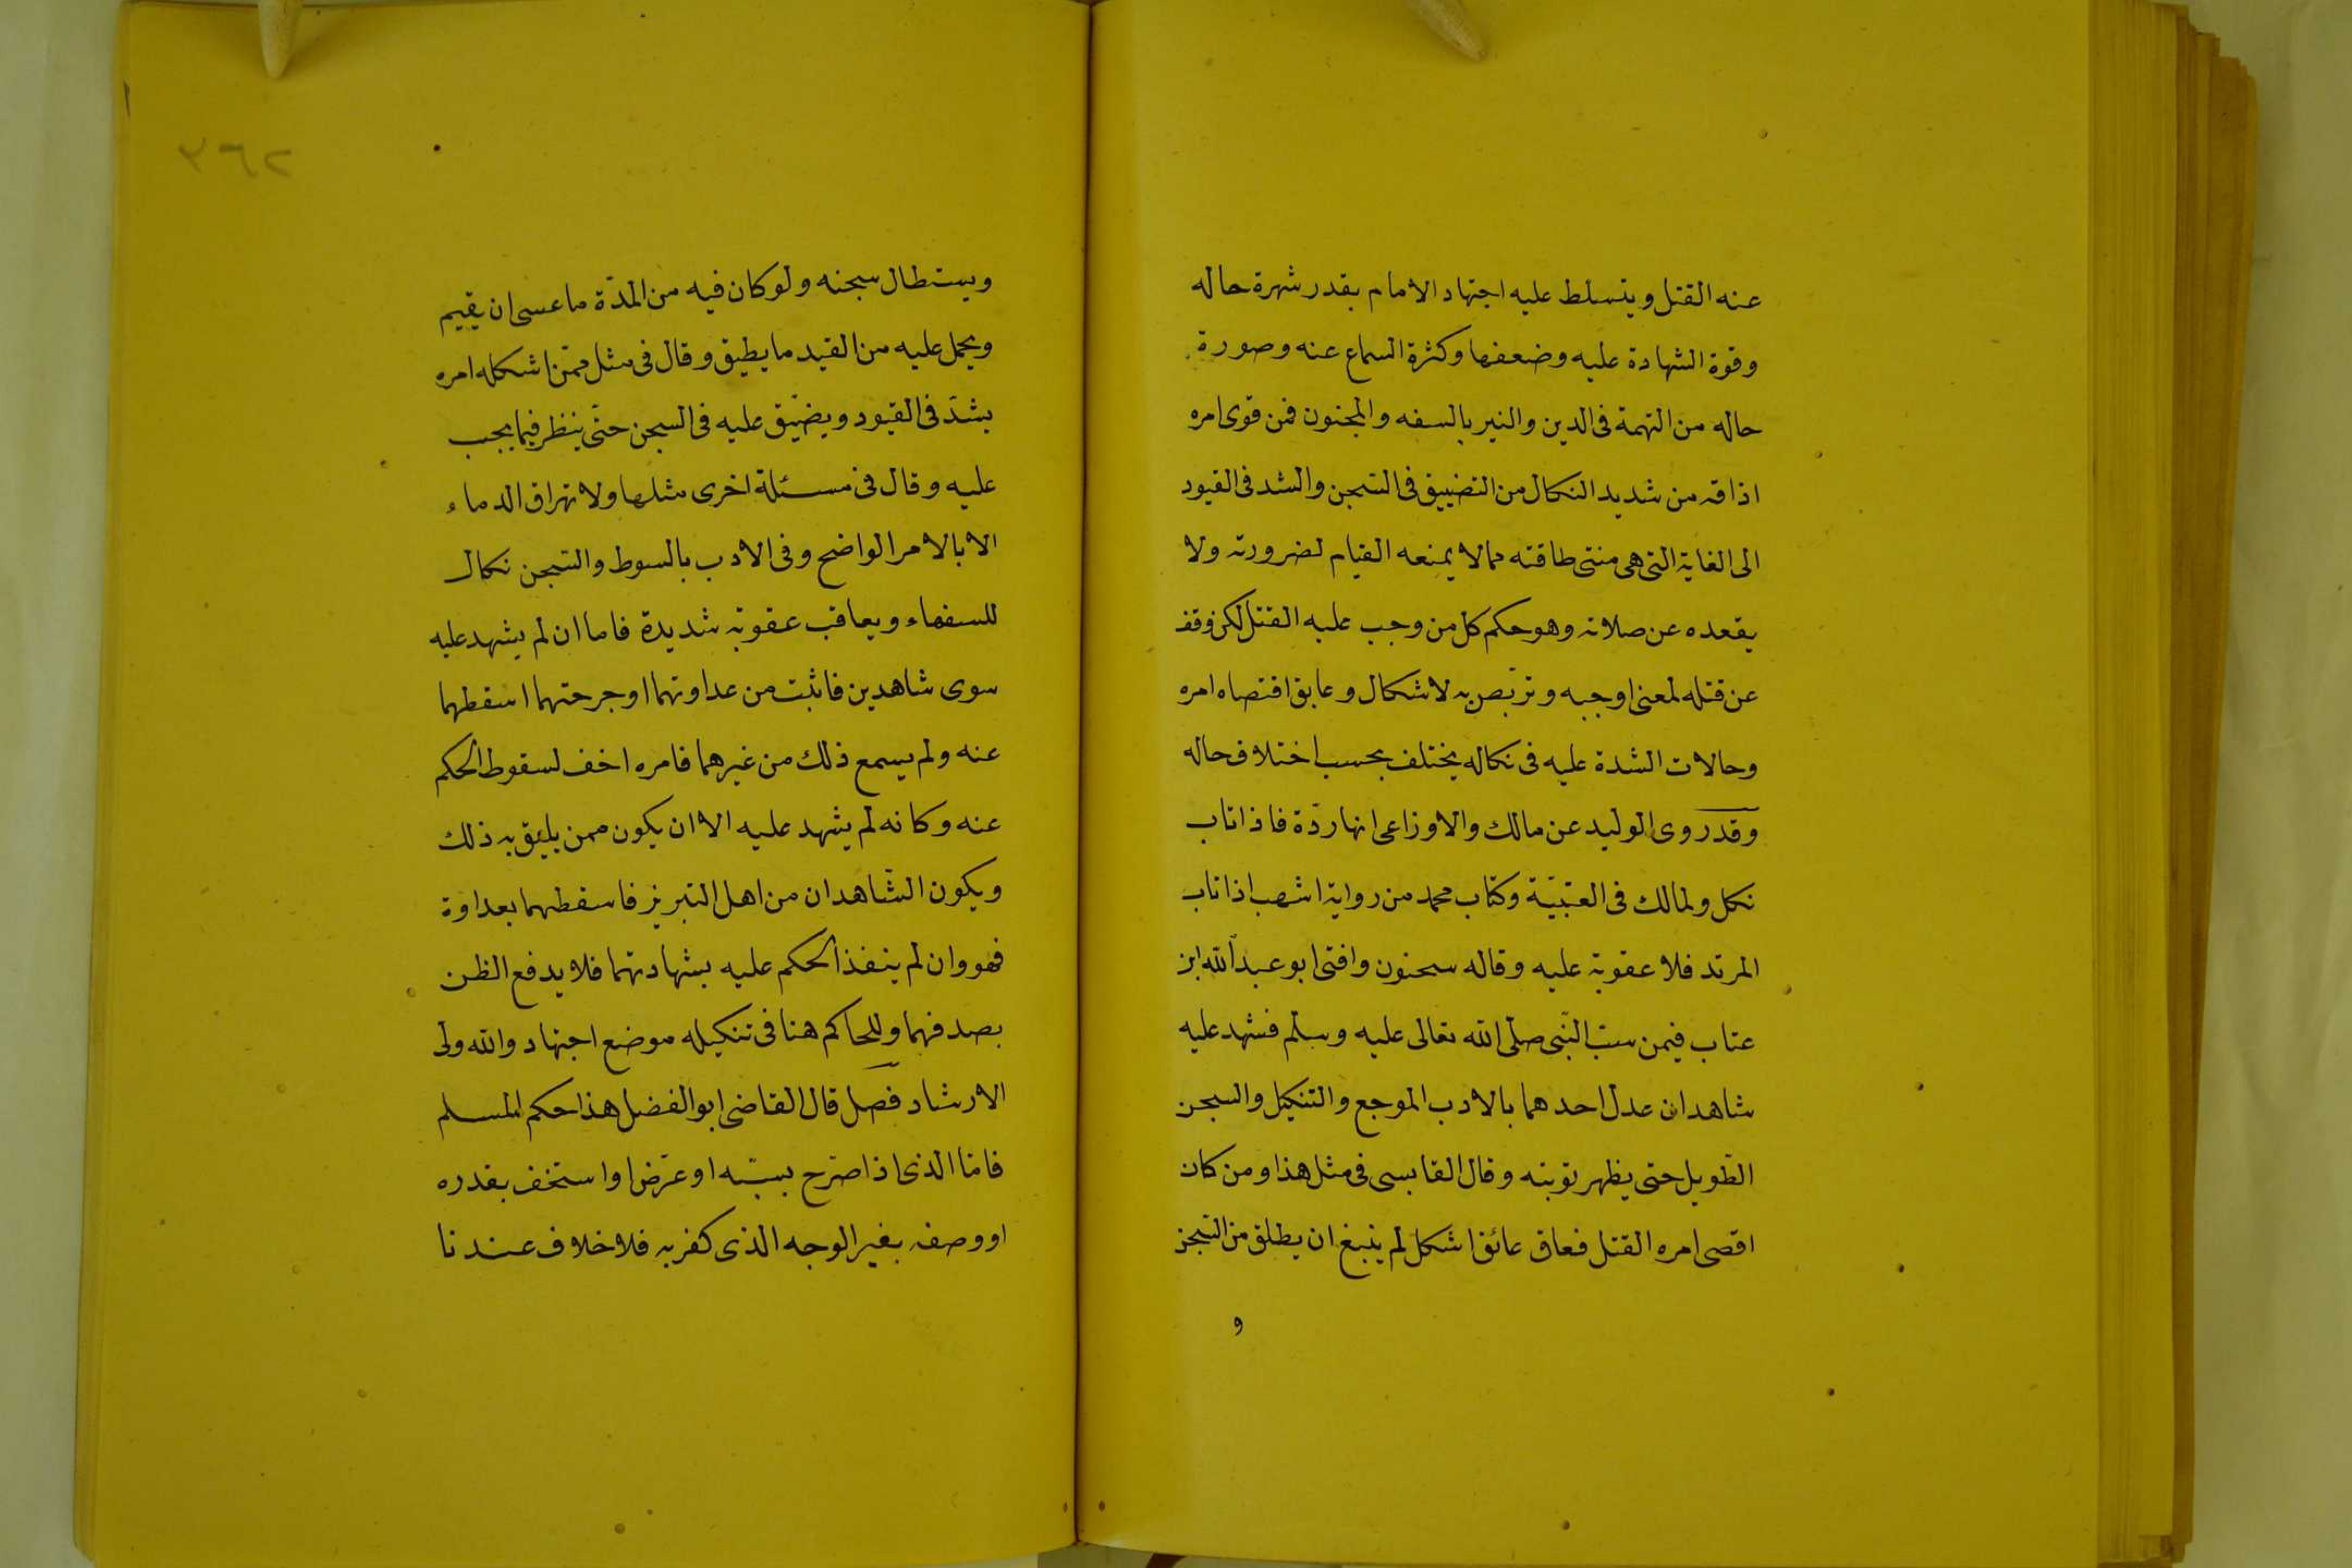 عنه القتل ويتسلط عليه اجتهاد الامام بقدر شهرة حاله
وقوة الشهادة عليه وضعفها وكثرة السماع عنه وصورة
حاله من التهمة فى الدين والنبر بالسفه والمجنون فمن قوى امره
اذاقه من شديد النكال من التضييق فى السّجن والشد فى القيود
الى الغاية التى هى منتى طاقته مما لا يمنعه القيام لضرورته ولا
يقعده عن صلاته وهو حكم كل من وجب عليه القتل لكن وقف
عن قتله لمعنى اوجبه وتربّص به لاشكال وعايق اقتصاه امره
وحالات الشدة عليه فى نكاله يختلف بحسب اختلاف حاله
وقد روى الوليد عن مالك والاوزاعى انها ردّة فاذا تاب
نكل ولمالك فى العتبيّة وكتاب محمد من رواية اشهب اذا تاب
المرتد فلا عقوبة عليه وقاله سحنون وافتى ابو عبد الله ابن
عتاب فيمن سبّ النّبى صلّى الله تعالى عليه وسلّم فشهد عليه
شاهدان عدل احدهما بالادب الموجع والتنكيل والسجن
الطّويل حتى يظهر توبته وقال القابسى فى مثل هذا ومن كان
اقصى امره القتل فعاق عائق اشكل لم ينبغ ان يطلق من السّجن
و
٣٦٢
ويستطال سجنه ولو كان فيه من المدّة ما عسى ان يقيم
ويحمل عليه من القيد ما يطيق وقال فى مثل ممّن اشكله امره
يشدّ فى القيود ويضيّق عليه فى السجن حتّى ينظر فيما يجب
عليه وقال فى مسئلة اخرى مثلها ولا تهراق الدماء
الا بالامر الواضح وفى الادب بالسوط والسّجن نكال
للسفهاء ويعاقب عقوبة شديدة فاما ان لم يشهد عليه
سوى شاهدين فاثبت من عداوتهما او جرحتهما اسقطهما
عنه ولم يسمع ذلك من غيرهما فامره اخف لسقوط الحكم
عنه وكانه لم يشهد عليه الا ان يكون ممن يليق به ذلك
ويكون الشّاهدان من اهل التبريز فاسقطهما بعداوة
فهو وان لم ينفذ الحكم عليه بشهادتهما فلا يدفع الظن
بصدقهما وللحاكم هنا فى تنكيله موضع اجتهاد والله ولى
الارشاد فصل قال القاضى ابو الفضل هذا حكم المسلم
فامّا الذى اذا صرّح بسبّه او عرّض او استخف بقدره
او وصفه بغير الوجه الذى كفر به فلا خلاف عندنا